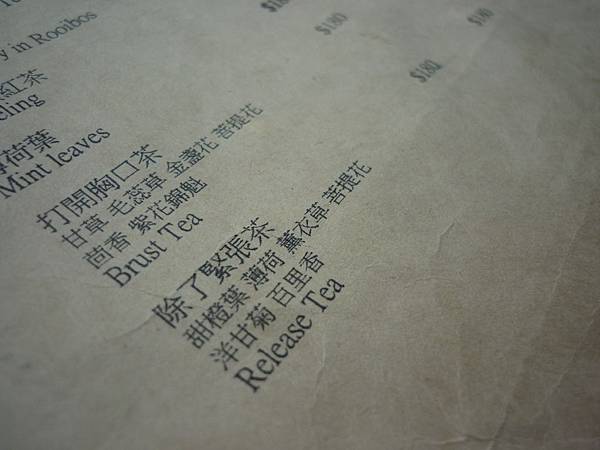 y in Rooibos
紅茶
ling
薄荷葉
Mint leaves
$180
打開胸口茶
甘草 毛蕊草 金盞花 菩提花
茴香 紫花錦魁
Brust Tea
$180
除了緊張茶
甜橙葉 薄荷 薰衣草 菩提花
洋甘菊 百里香
Release Tea
$180